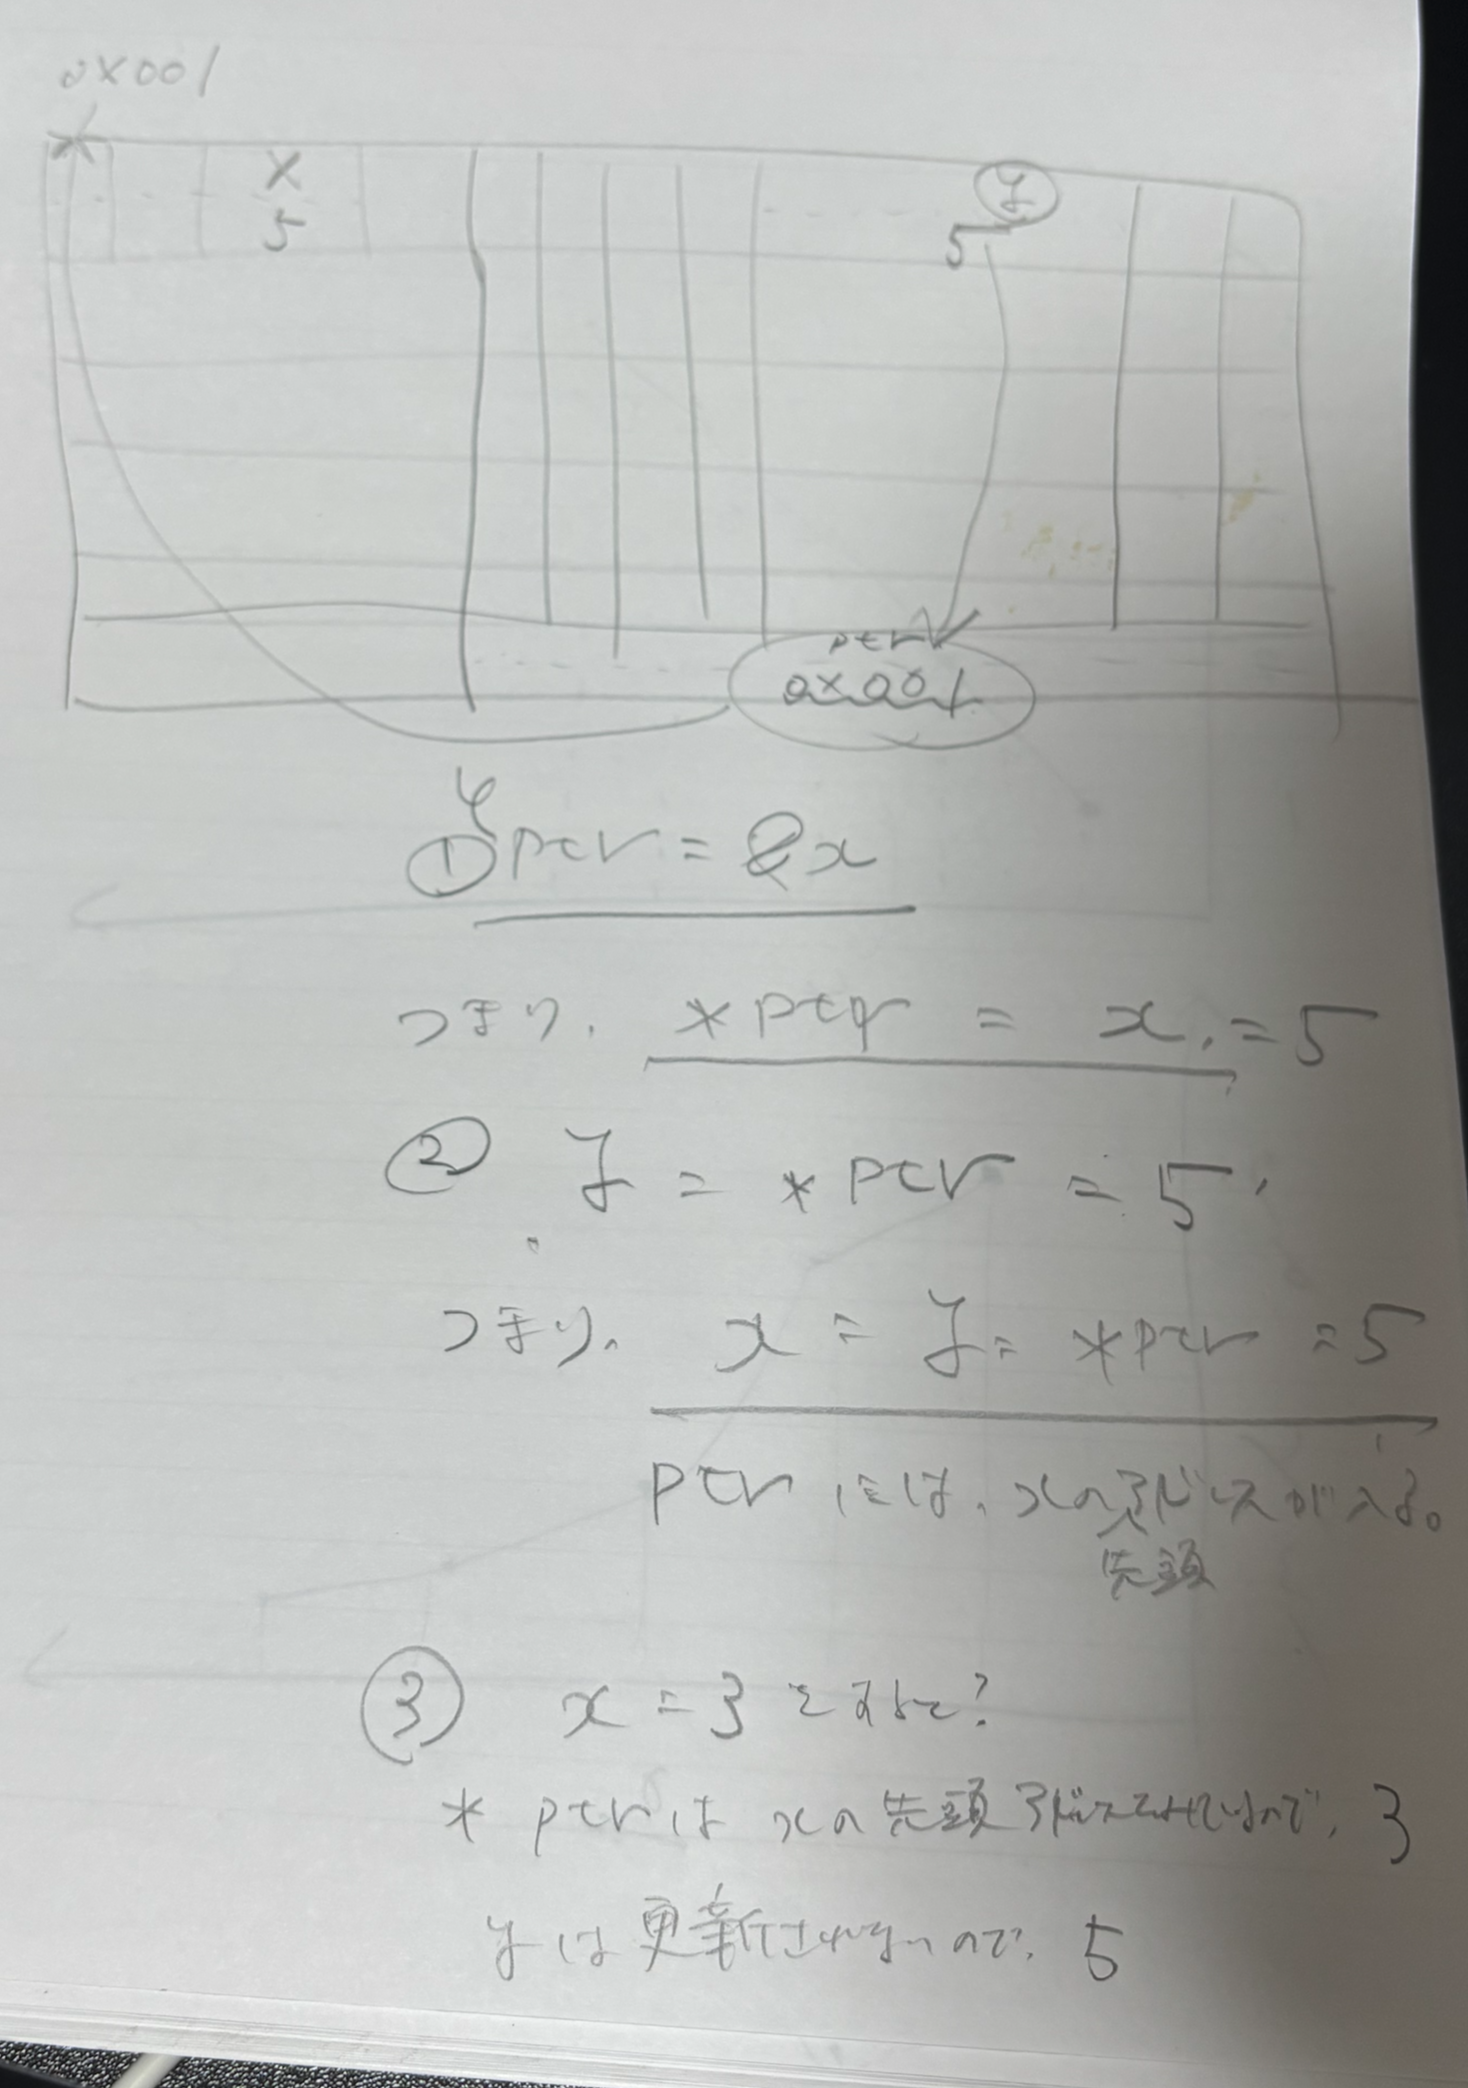 0x001
x
y
5
5
ptr
0x001
① ptr = &x
つまり、 *ptr = x, = 5
② y = *ptr = 5
つまり、 x = y = *ptr = 5
ptr には、xのアドレスが入る。
先頭
③ x = 3 とすると?
* ptr は xの先頭アドレス ので、3
yは更新されないので、5